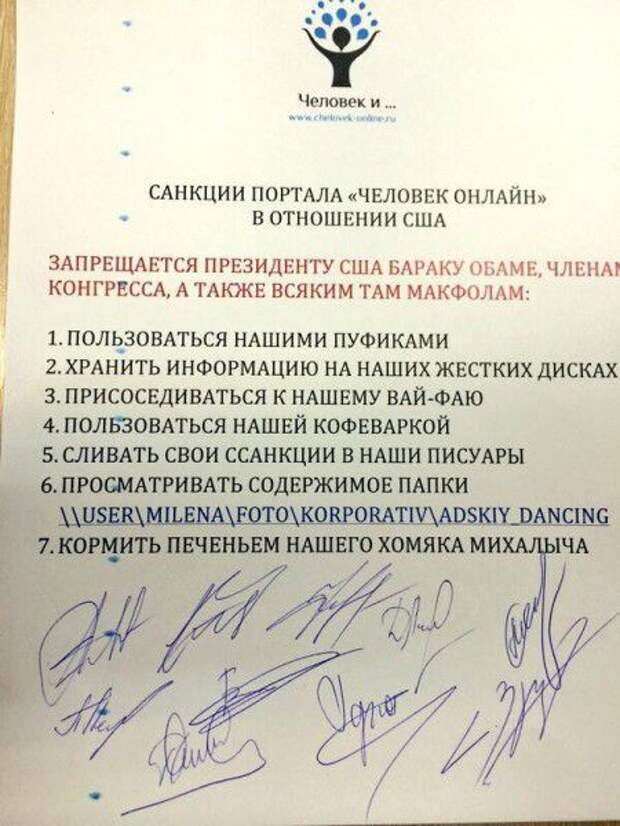 Человек и ...
www.chelovek-online.ru
САНКЦИИ ПОРТАЛА «ЧЕЛОВЕК ОНЛАЙН»
В ОТНОШЕНИИ США
ЗАПРЕЩАЕТСЯ ПРЕЗИДЕНТУ США БАРАКУ ОБАМЕ, ЧЛЕНАМ
КОНГРЕССА, А ТАКЖЕ ВСЯКИМ ТАМ МАКФОЛАМ:
1. ПОЛЬЗОВАТЬСЯ НАШИМИ ПУФИКАМИ
2. ХРАНИТЬ ИНФОРМАЦИЮ НА НАШИХ ЖЕСТКИХ ДИСКАХ
3. ПРИСОСЕДИВАТЬСЯ К НАШЕМУ ВАЙ-ФАЮ
4. ПОЛЬЗОВАТЬСЯ НАШЕЙ КОФЕВАРКОЙ
5. СЛИВАТЬ СВОИ ССАНКЦИИ В НАШИ ПИСУАРЫ
6. ПРОСМАТРИВАТЬ СОДЕРЖИМОЕ ПАПКИ
\\USER\MILENA\FOTO\KORPORATIV\ADSKIY_DANCING
7. КОРМИТЬ ПЕЧЕНЬЕМ НАШЕГО ХОМЯКА МИХАЛЫЧА